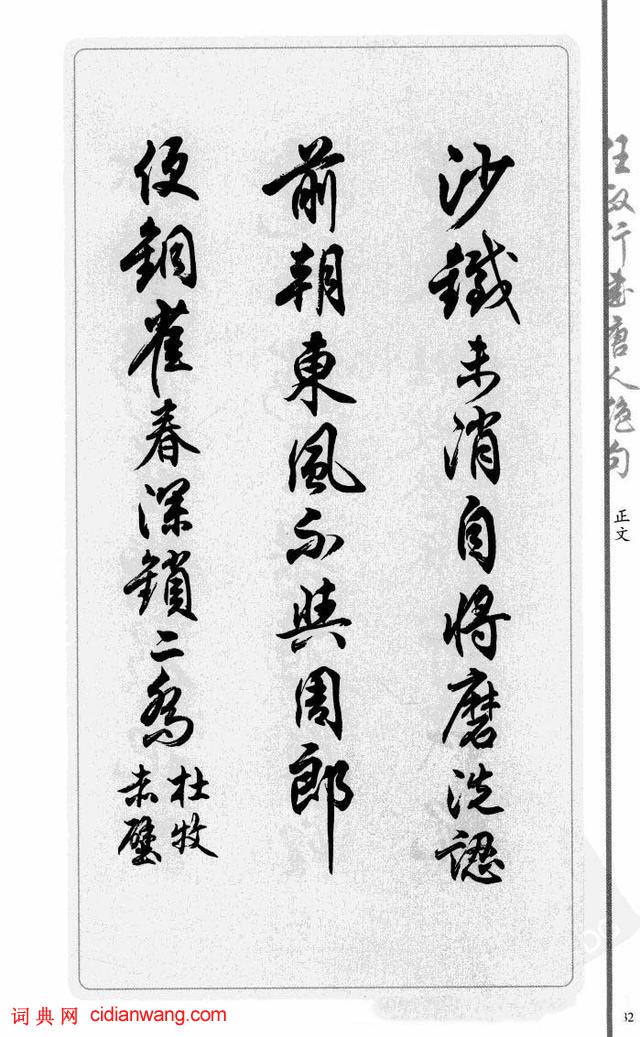 任政行书唐人绝句
正文
沙鐵未消自將磨洗認
前朝東風不與周郎
便銅雀春深鎖二喬
杜牧
赤壁
词典网 cidianwang.com